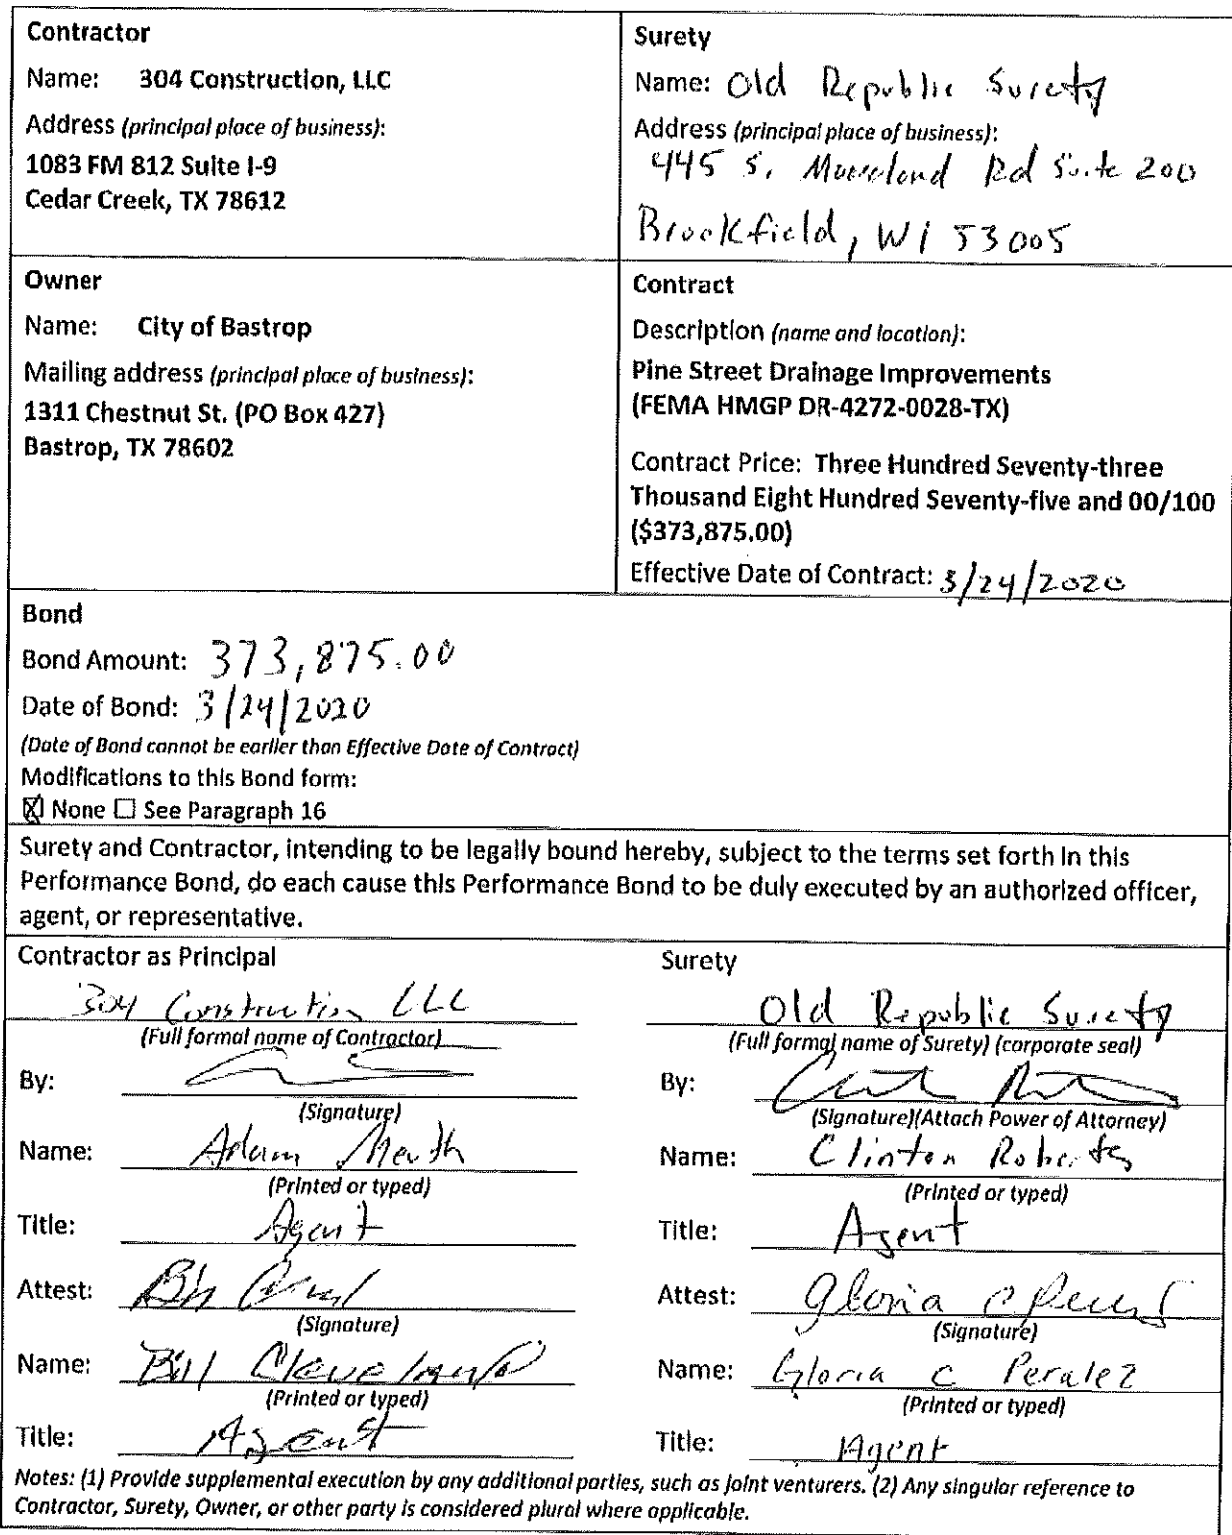 Contractor
Name: 304 Construction, LLC
Address (principal place of business):
1083 FM 812 Suite I-9
Cedar Creek, TX 78612
Surety
Name: Old Republic Surety
Address (principal place of business):
445 S. Rd Suite 200
Brookfield, WI 53005
Owner
Name: City of Bastrop
Mailing address (principal place of business):
1311 Chestnut St. (PO Box 427)
Bastrop, TX 78602
Contract
Description (name and location):
Pine Street Drainage Improvements
(FEMA HMGP DR-4272-0028-TX)
Contract Price: Three Hundred Seventy-three
Thousand Eight Hundred Seventy-five and 00/100
($373,875.00)
Effective Date of Contract: 3/24/2020
Bond
Bond Amount: 373,875.00
Date of Bond: 3/24/2020
(Date of Bond cannot be earlier than Effective Date of Contract)
Modifications to this Bond form:
☒ None ☐ See Paragraph 16
Surety and Contractor, intending to be legally bound hereby, subject to the terms set forth in this
Performance Bond, do each cause this Performance Bond to be duly executed by an authorized officer,
agent, or representative.
Contractor as Principal
304 Construction LLC
(Full formal name of Contractor)
By:
(Signature)
Name: Adam
(Printed or typed)
Title: Agent
Attest:
(Signature)
Name: Bill Cleveland
(Printed or typed)
Title: Agent
Surety
Old Republic Surety
(Full formal name of Surety) (corporate seal)
By:
(Signature)(Attach Power of Attorney)
Name: Clinton Roberts
(Printed or typed)
Title: Agent
Attest: Gloria C
(Signature)
Name: Gloria C Peralez
(Printed or typed)
Title: Agent
Notes: (1) Provide supplemental execution by any additional parties, such as joint venturers. (2) Any singular reference to
Contractor, Surety, Owner, or other party is considered plural where applicable.